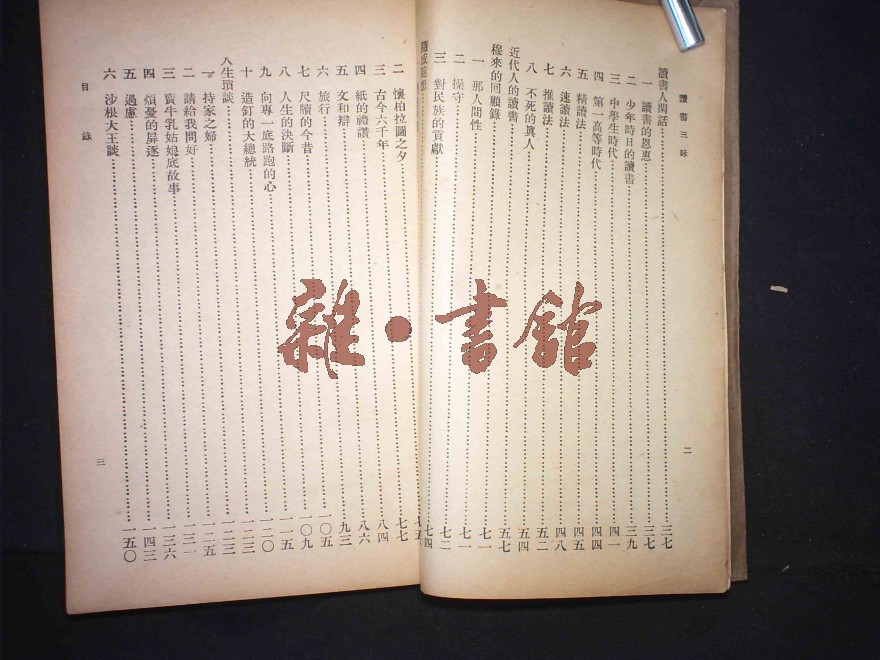 讀書三昧
讀書人閑話 三七
一 讀書的恩惠 三七
二 少年時日的讀書 三九
三 中學生時代 四一
四 第一高等時代 四四
五 精讀法 四五
六 速讀法 四八
七 推讀法 五二
八 不死的眞人 五四
近代人的讀書 五七
穆來的回顧錄 七一
一 那人間性 七一
二 操守 七二
三 對民族的貢獻 七四
隨感隨想
二
七五
二 懷柏拉圖之夕 七七
三 古今六千年 八四
四 紙的禮讚 八六
五 文和辯 九三
六 旅行 一〇五
七 尺牘的今昔 一〇九
八 人生的決斷 一一五
九 向專一底路跑的心 一二〇
十 造釘的大總統 一二三
人生瑣談 一二三
一 持家之婦 一二五
二 請給我問好 一三一
三 賣牛乳姑娘底故事 一三六
四 煩憂的屏逐 一四三
五 過慮 一五〇
六 沙根大王談
目錄
三
雜·書館